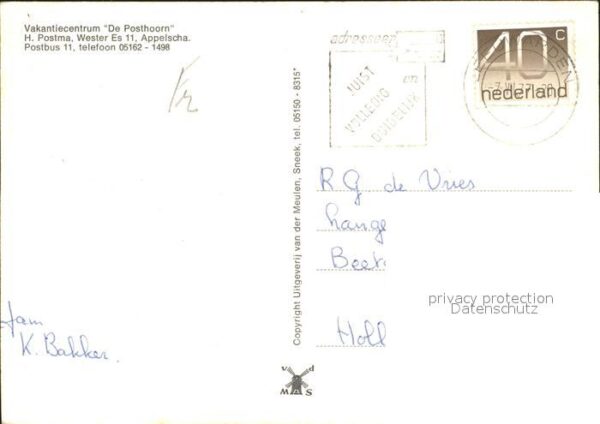 Vakantiecentrum "De Posthoorn"
H. Postma, Wester Es 11, Appelscha.
Postbus 11, telefoon 05162 - 1498
adresseer
JUIST
VOLLEDIG
en
DUIDELIJK
40 c
nederland
Copyright Uitgeverij van der Meulen, Sneek, tel. 05150 - 8315*
R G de Vries
Lange
Beet
Holl
privacy protection
Datenschutz
fam
K. Bakker.
v d
M S